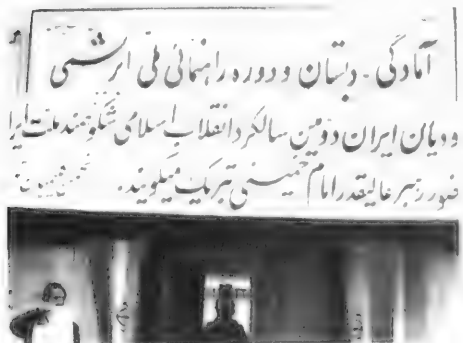 آمادگی - دبستان و دوره راهنمائی ملی اثر شمسی
و دیان ایران دومین سالگرد انقلاب اسلامی شکوهمند ملت ایرا
رهبر عالیقدر امام خمینی تبریک میگویند.